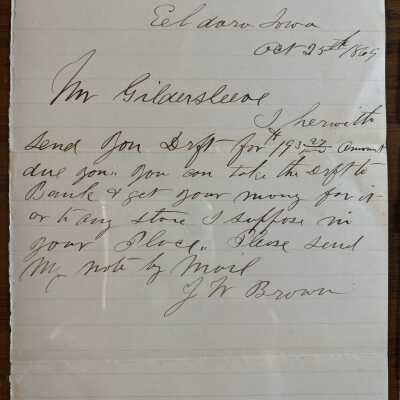 Eeldara Iowa
Oct 25th /869
Mr Gildersleeve
I herwith
send you Drft for $193 27/00 Amount
due you,, you can take the Drft to
Bank & get your mony for it
or to any store I suppose in
your Place,, Please send
My note by Mail
J W Brown